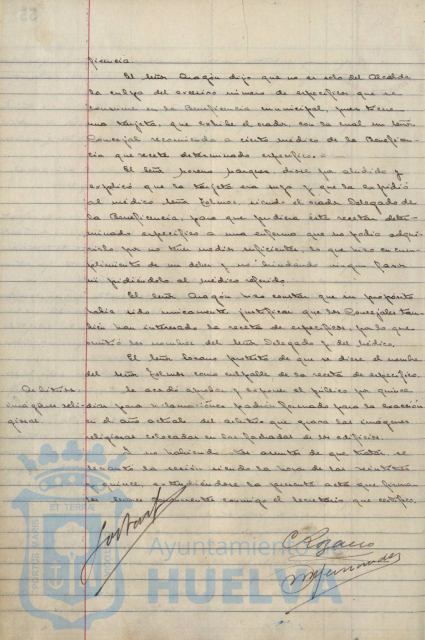 ficencia.
El Señor Aragón dijo que no es solo del Alcalde
la culpa del excesivo número de específicos que se
consume en la Beneficencia municipal, pues tiene
una tarjeta, que exhibe el orador, con la cual un Señor
Concejal recomienda a cierto médico de la Benefi-
cencia que recete determinado específico.=
El Señor Moreno Marquez, dióse por aludido y
explicó que la tarjeta era suya y que la expidió
al médico Señor Tolmos, siendo el orador Delegado de
la Beneficencia, para que pudiera éste recetar deter-
minado específico a una enferma que no podía adqui-
rirlo por no tener medios suficientes, lo que hizo en cum-
plimiento de un deber y no brindando ningún favor
ni pidiéndolo al médico referido.
El Señor Aragón hizo constar que su propósito
había sido unicamente justificar que los Concejales tam-
bién han interesado la receta de específicos, por lo que
omitió los nombres del Señor Delegado y del Médico.
El Señor Lozano protestó de que se diese el nombre
del Señor Tolmos como culpable de la receta de específico.
Arbitrio
imágenes reli-
giosas.
Se acordó aprobar y exponer al público por quince
dias para reclamaciones padrón formado para la exacción
en el año actual del arbitrio que grava las imágenes
religiosas colocadas en las fachadas de los edificios.
Y no habiendo más asuntos de que tratar se
levantó la sesión siendo la hora de las veintitres
y quince, extendiéndose la presente acta que firman
los Señores concurrentes conmigo el Secretario que certifico.
PORTUS MARIS ET TERRAE CUSTODIA
Ayuntamiento de
HUELVA